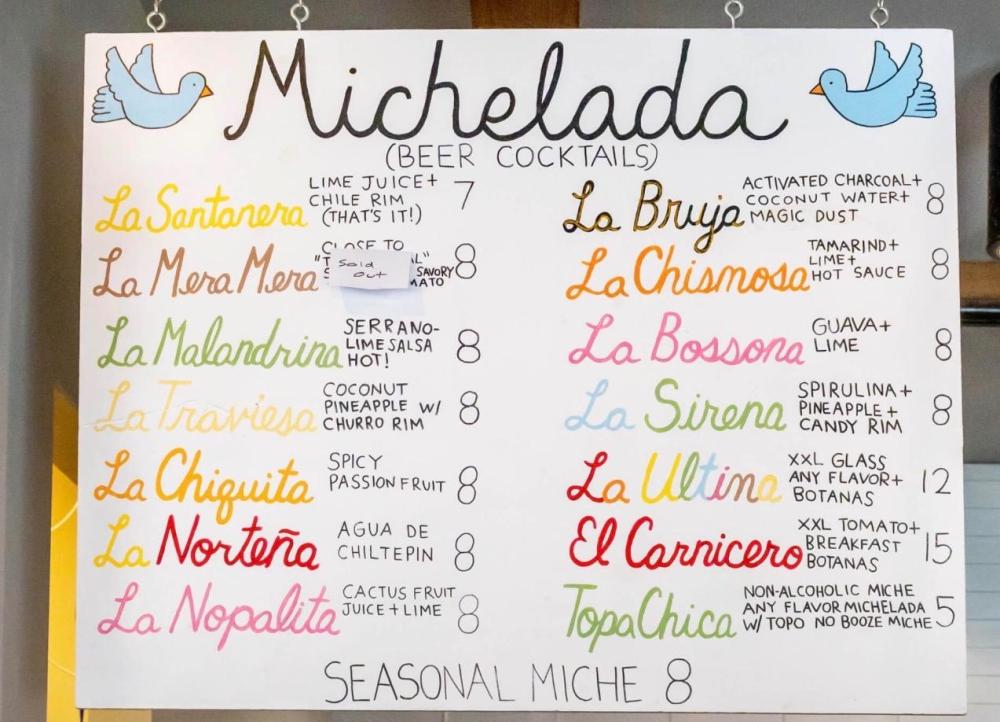 Michelada
(BEER COCKTAILS)
La Santanera
LIME JUICE+
CHILE RIM
(THAT'S IT!)
7
La Mera Mera
CLOSE TO
Sold
out
SAVORY
8
La Malandrina
SERRANO-
LIME SALSA
HOT!
8
La Traviesa
COCONUT
PINEAPPLE W/
CHURRO RIM
8
La Chiquita
SPICY
PASSION FRUIT
8
La Norteña
AGUA DE
CHILTEPIN
8
La Nopalita
CACTUS FRUIT
JUICE+LIME
8
La Bruja
ACTIVATED CHARCOAL+
COCONUT WATER+
MAGIC DUST
8
La Chismosa
TAMARIND+
LIME+
HOT SAUCE
8
La Bossona
GUAVA+
LIME
8
La Sirena
SPIRULINA+
PINEAPPLE+
CANDY RIM
8
La Ultima
XXL GLASS
ANY FLAVOR+
BOTANAS
12
El Carnicero
XXL TOMATO+
BREAKFAST
BOTANAS
15
TopaChica
NON-ALCOHOLIC MICHE
ANY FLAVOR MICHELADA
W/ TOPO NO BOOZE MICHE
5
SEASONAL MICHE 8